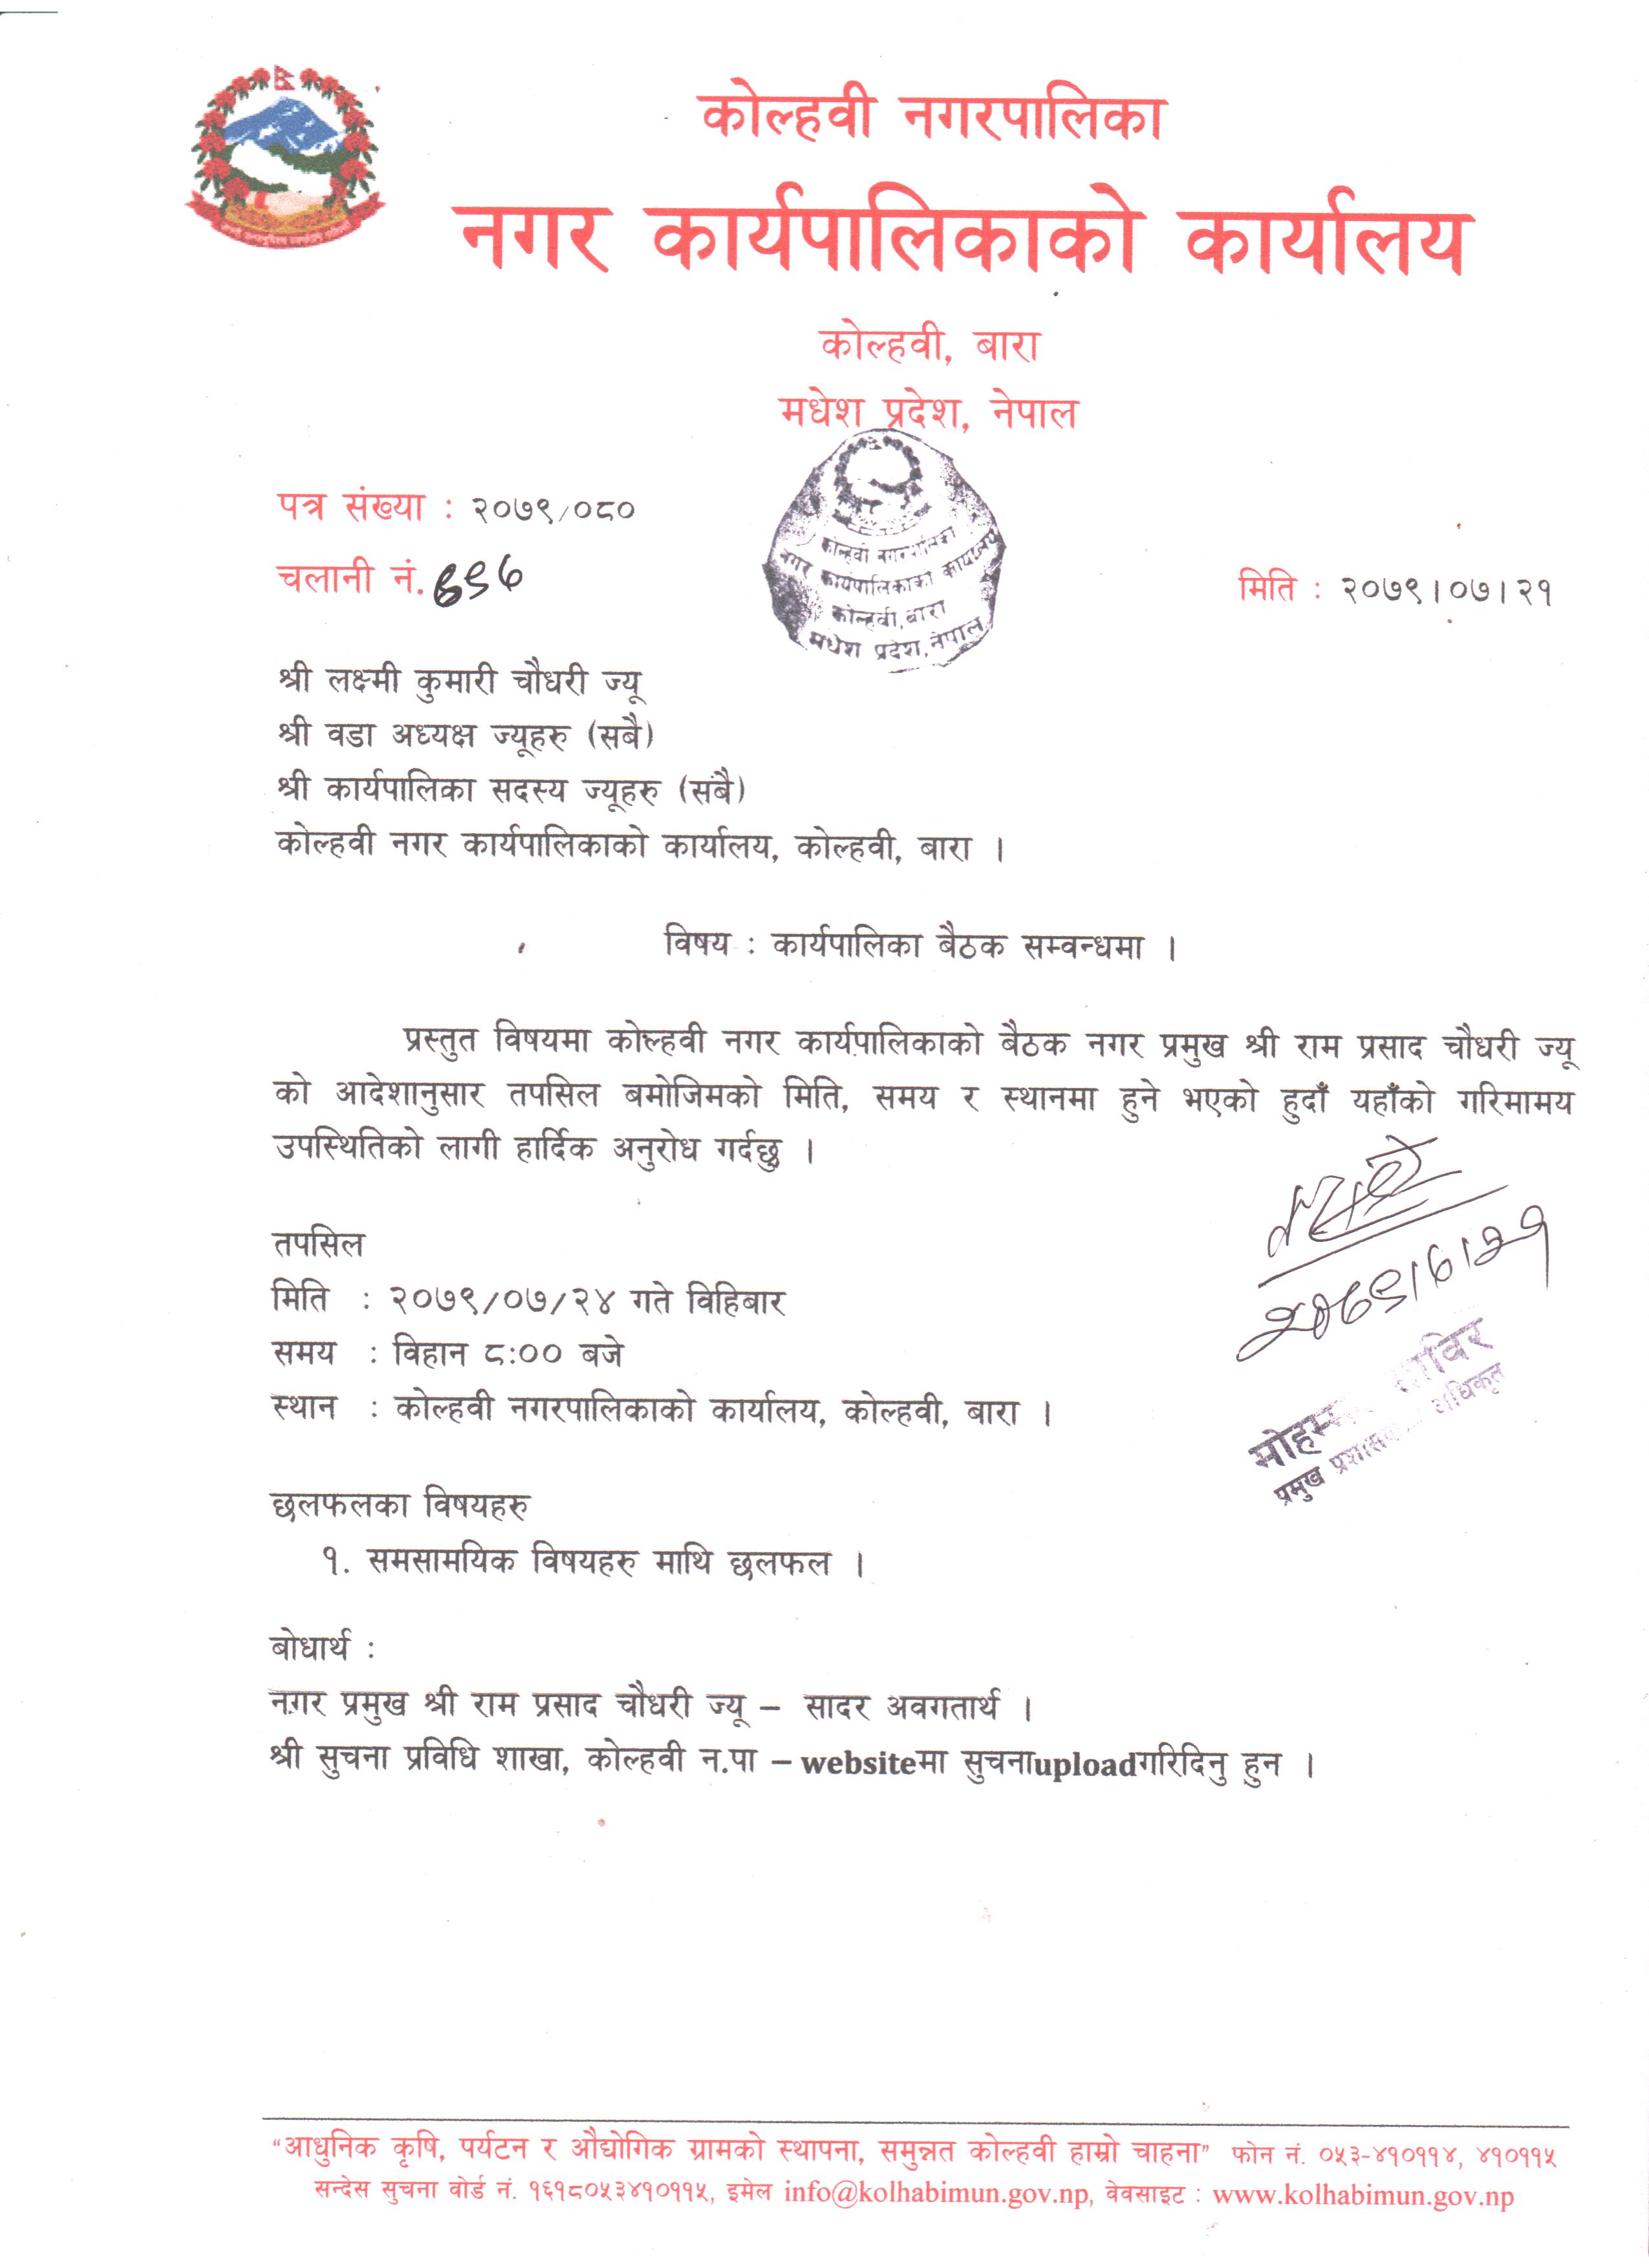 कोल्हवी नगरपालिका
नगर कार्यपालिकाको कार्यालय
कोल्हवी, बारा
मधेश प्रदेश, नेपाल
पत्र संख्या : २०७९/०८०
चलानी नं.
मिति : २०७९।०७।२१
कोल्हवी नगरपालिका
नगर कार्यपालिकाको कार्यालय
कोल्हवी, बारा
मधेश प्रदेश, नेपाल
श्री लक्ष्मी कुमारी चौधरी ज्यू
श्री वडा अध्यक्ष ज्यूहरु (सबै)
श्री कार्यपालिका सदस्य ज्यूहरु (सबै)
कोल्हवी नगर कार्यपालिकाको कार्यालय, कोल्हवी, बारा ।
विषय : कार्यपालिका बैठक सम्वन्धमा ।
प्रस्तुत विषयमा कोल्हवी नगर कार्यपालिकाको बैठक नगर प्रमुख श्री राम प्रसाद चौधरी ज्यू
को आदेशानुसार तपसिल बमोजिमको मिति, समय र स्थानमा हुने भएको हुदाँ यहाँको गरिमामय
उपस्थितिको लागी हार्दिक अनुरोध गर्दछु ।
२०७९।७।२१
तपसिल
मिति : २०७९/०७/२४ गते विहिबार
समय : विहान ८:०० बजे
स्थान : कोल्हवी नगरपालिकाको कार्यालय, कोल्हवी, बारा ।
प्रमुख
छलफलका विषयहरु
१. समसामयिक विषयहरु माथि छलफल ।
बोधार्थ :
नगर प्रमुख श्री राम प्रसाद चौधरी ज्यू – सादर अवगतार्थ ।
श्री सुचना प्रविधि शाखा, कोल्हवी न.पा – websiteमा सुचनाuploadगरिदिनु हुन ।
“आधुनिक कृषि, पर्यटन र औद्योगिक ग्रामको स्थापना, समुन्नत कोल्हवी हाम्रो चाहना” फोन नं. ०५३-४१०११४, ४१०११५
सन्देस सुचना वोर्ड नं. १६१८०५३४१०११५, इमेल info@kolhabimun.gov.np, वेवसाइट : www.kolhabimun.gov.np